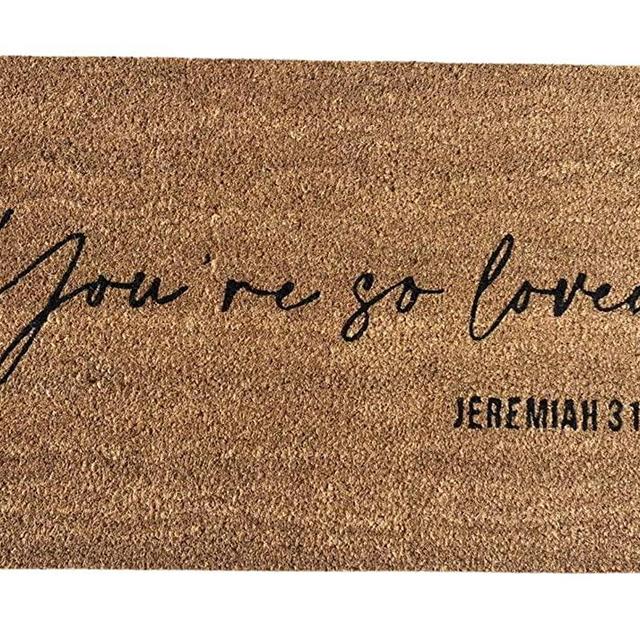 You're so love
JEREMIAH 31